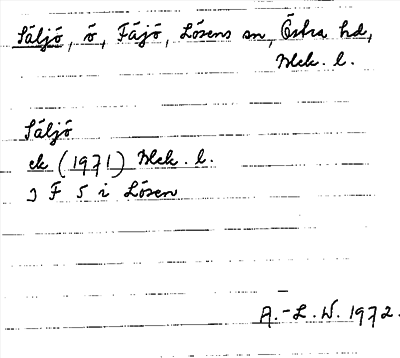 Säljö, ö, Fäjö, Lösens sn, Östra hd,
Blek. l.
Säljö
ek (1971) Blek. l.
3 F 5 i Lösen
A.-L.W. 1972.